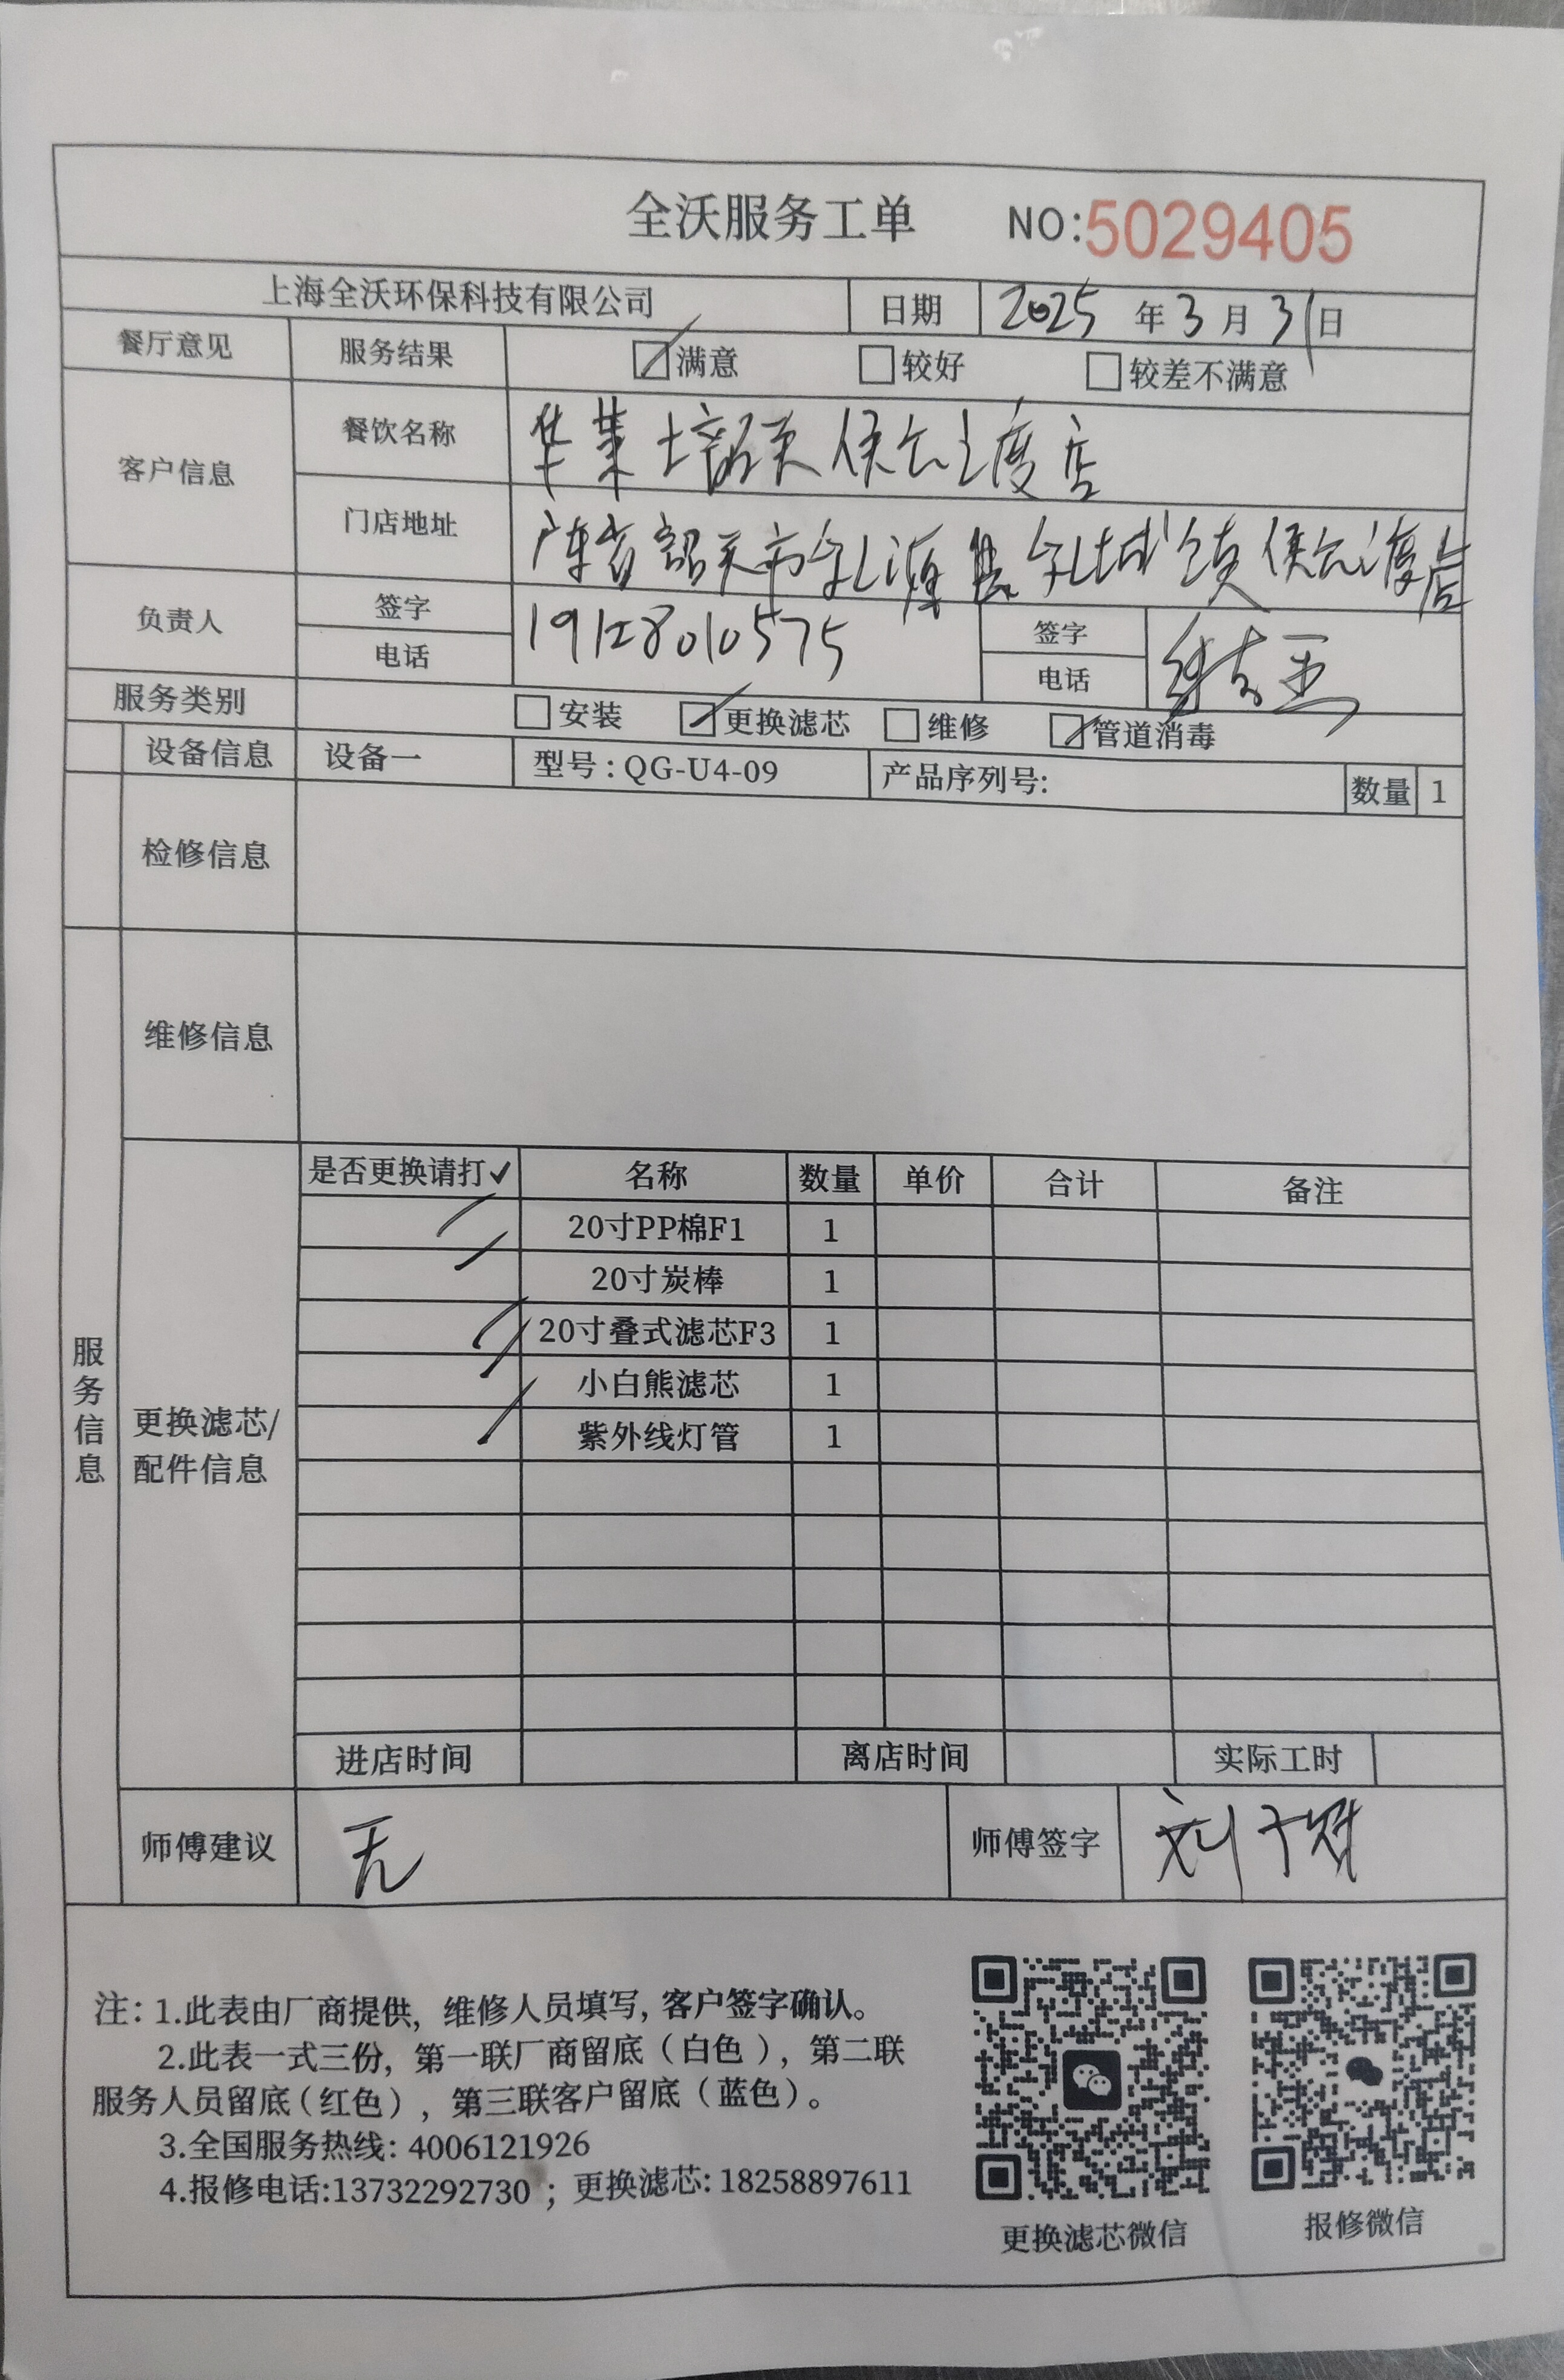 全沃服务工单 NO:5029405
上海全沃环保科技有限公司 日期 2025 年 3 月 31 日
餐厅意见 服务结果 满意 较好 较差不满意
客户信息 餐饮名称 华莱士韶关侯公渡店
门店地址 广东省韶关市乳源县乳城镇侯公渡店
负责人 签字 电话 19128010575 签字 电话
服务类别 安装 更换滤芯 维修 管道消毒
设备信息 设备一 型号:QG-U4-09 产品序列号: 数量 1
检修信息
维修信息
服务信息
更换滤芯/配件信息
是否更换请打✓ 名称 数量 单价 合计 备注
20寸PP棉F1 1
20寸炭棒 1
20寸叠式滤芯F3 1
小白熊滤芯 1
紫外线灯管 1
进店时间 离店时间 实际工时
师傅建议 无 师傅签字 刘
注: 1.此表由厂商提供, 维修人员填写, 客户签字确认。
2.此表一式三份, 第一联厂商留底（白色）, 第二联
服务人员留底（红色）, 第三联客户留底（蓝色）。
3.全国服务热线: 4006121926
4.报修电话:13732292730 ; 更换滤芯: 18258897611
更换滤芯微信 报修微信